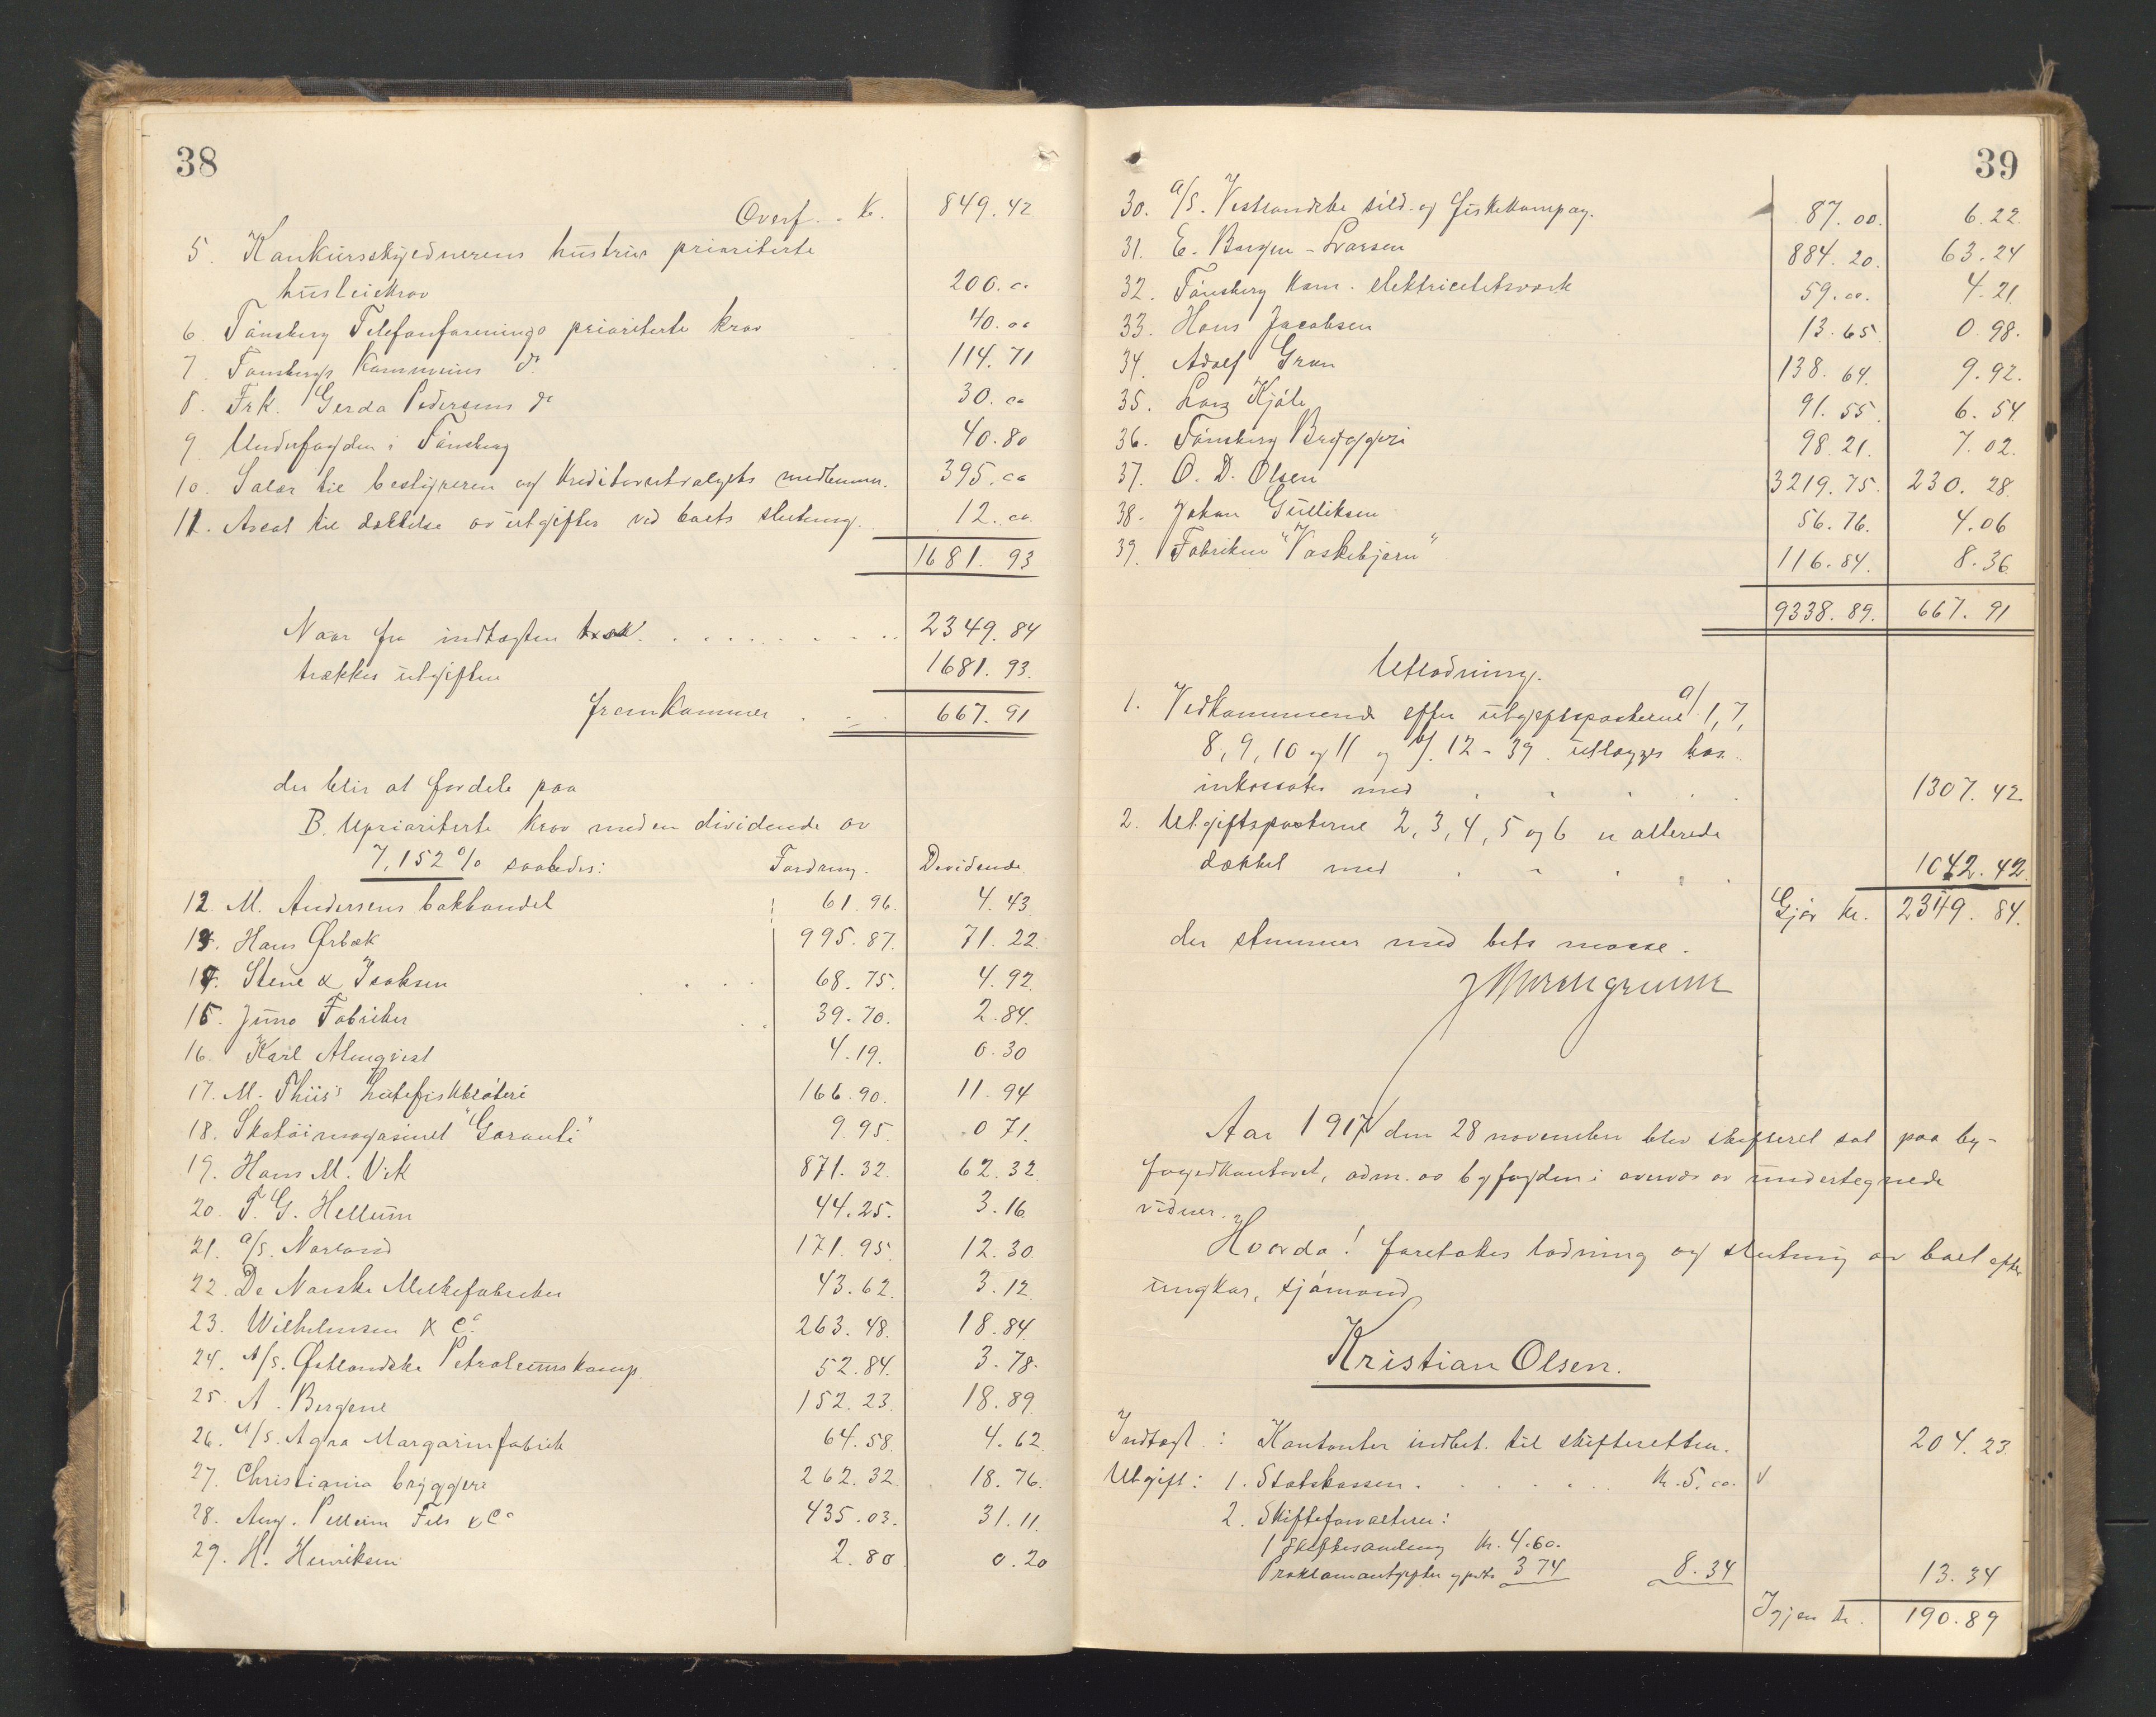 38
Overf. . Kr. 849.42
5. Konkursskyldnerens hustrus prioriterte
husleiekrav 200.00
6. Tønsberg Telefonforenings prioriterte krav 40.00
7. Tønsbergs Kommunes do 114.71
8. Frk. Gerda Pedersens do 30.00
9. Underfogden i Tønsberg 40.80
10. Salær til bestyreren og kreditorutvalgets medlemmer. 395.00
11. Avsat til dækkelse av utgifter ved boets slutning. 12.00
1681.93
Naar fra indtægten 2349.84
trækkes utgiften 1681.93.
fremkommer 667.91
der blir at fordele paa
B. Uprioriterte krav med en dividende av
7,152 % saaledes: Fordring. Dividende.
12. M. Andersens bokhandel 61.96. 4.43
13. Hans Ørbæk 995.87. 71.22.
14. Stene & Isaksen 68.75. 4.92.
15. Juno Fabriker 39.70. 2.84.
16. Karl Almqvist 4.19. 0.30
17. M. Thiis's Lutefiskbløteri 166.90. 11.94
18. Skotøimagasinet "Garanti" 9.95. 0 71.
19. Hans M. Vik 871.32. 62.32.
20. T. G. Hellum 44.25. 3.16
21. A/S. Norland 171.95. 12.30.
22. De Norske Melkefabriker 43.62. 3.12.
23. Wilhelmsen & Co. 263.48. 18.84.
24. A/S. Østlandske Petroleumskomp. 52.84. 3.78.
25. A. Bergene 152.23. 18.89.
26. A/S. Agra Margarinfabrik 64.58. 4.62.
27. Christiania bryggeri 262.32. 18.76.
28. Aug. Pellerin Fils & Co 435.03. 31.11.
29. H. Henriksen 2.80. 0.20
39
30. A/S. Vestlandske sild- og fiskekompag. 87.00. 6.22.
31. E. Borgen-Larsen 884.20. 63.24
32. Tønsberg kom. elektricitetsverk 59.00. 4.21.
33. Hans Jacobsen 13.65 0.98.
34. Adolf Gran 138.64. 9.92.
35. Lars Kjøle 91.55. 6.54
36. Tønsberg Bryggeri 98.21. 7.02.
37. O. D. Olsen 3219.75. 230.28.
38. Johan Gulliksen 56.76. 4.06
39. Fabriken "Vaskebjørn" 116.84. 8.36
9338.89. 667.91
Utlodning.
1. Vedkommende efter utgiftsposterne a/ 1, 7,
8, 9, 10 og 11 og b/. 12-39. utlægges hos
inkassator med 1307.42
2. Utgiftsposterne 2, 3, 4, 5 og 6 er allerede
dækket med 1042.42.
Gjør kr. 2349.84.
der stemmer med bets masse.
Aar 1917 den 28 november blev skifteret sat paa by-
fogedkontoret, adm. av byfogden i overvær av undertegnede
vidner.
Hvorda! foretokes lodning og slutning av boet efter
ungkar, sjømand
Kristian Olsen.
Indtægt: Kontanter indbet. til skifteretten. 204.23.
Utgift: 1. Statskassen kr. 5.00. V
2. Skifteforvalteren:
1 Skiftesamling kr. 4.60.
Proklamautgifter og porto 3 74 8.34 13.34
Igjen kr. 190.89